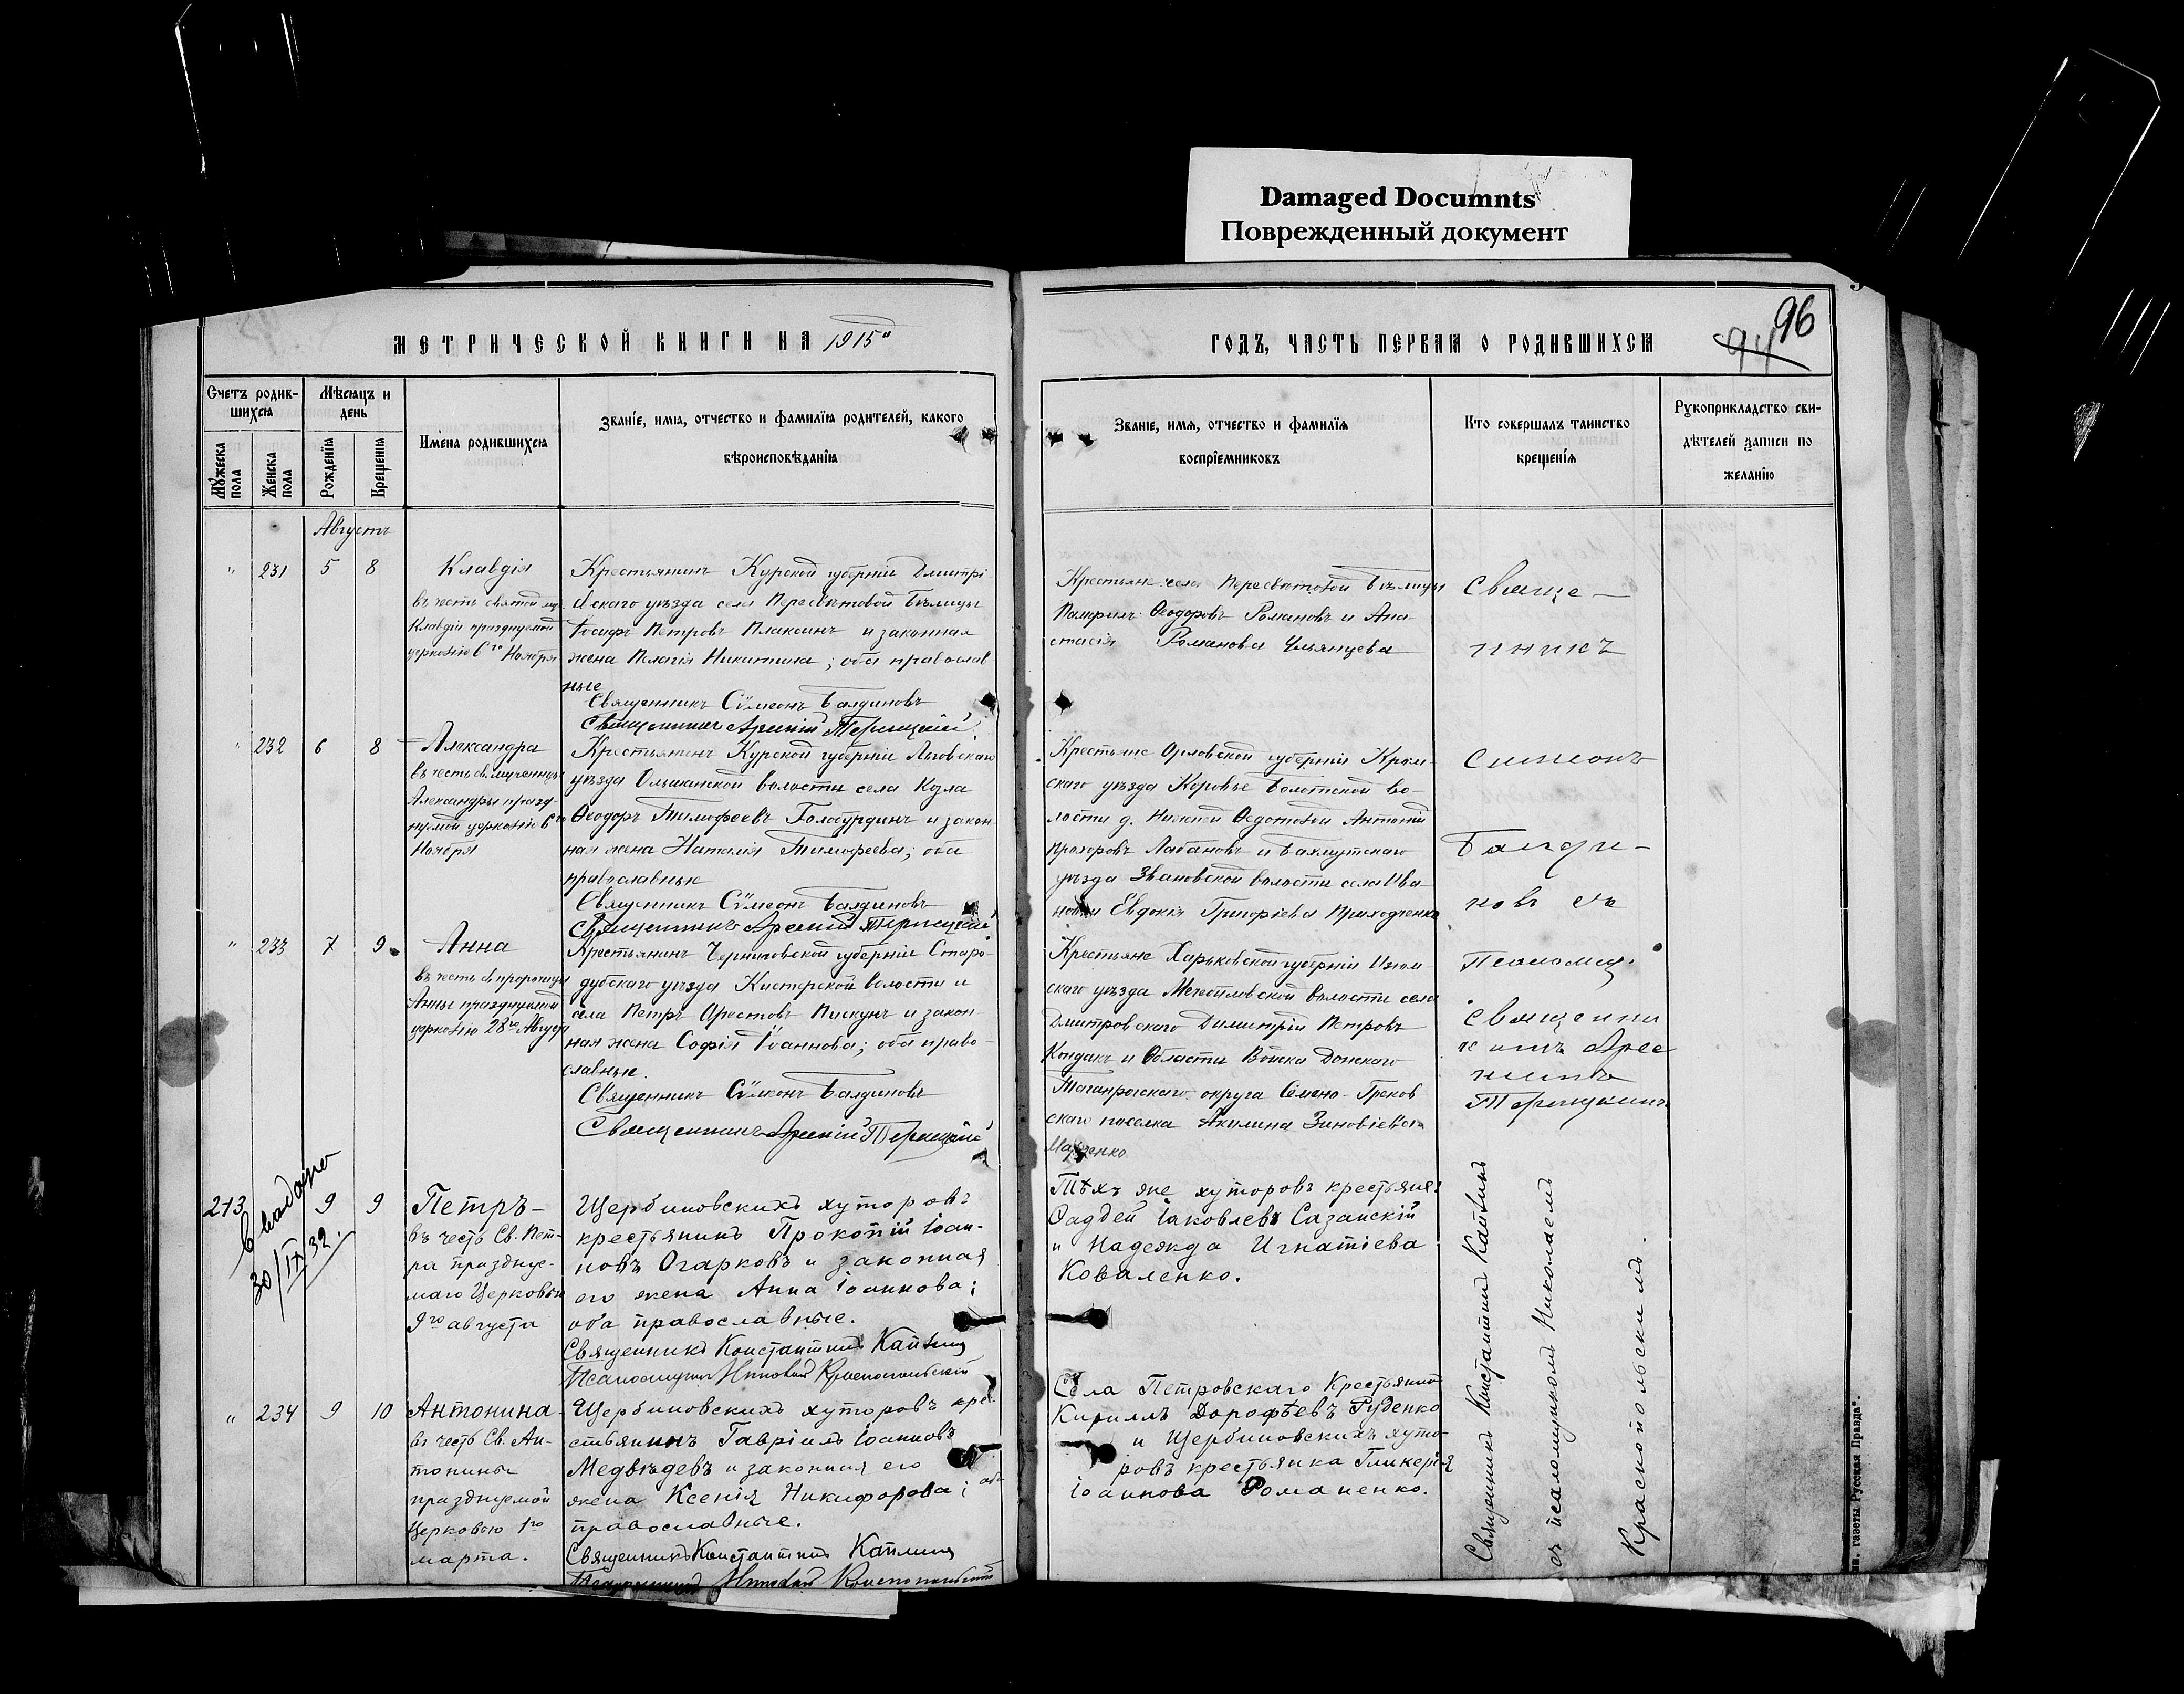 Damaged Documnts
Поврежденный документ
96
94
МЕТРИЧЕСКОЙ КНИГИ НА 1915й
ГОДЪ, ЧАСТЬ ПЕРВАЯ О РОДИВШИХСЯ
Счетъ родив-
шихся
Мѣсяцъ и
день
Мужеска
пола
Женска
пола
Рожденія
Крещенія
Имена родившихся
Званіе, имя, отчество и фамилія родителей, какого
вѣроисповѣданія
Званіе, имя, отчество и фамилія
воспріемниковъ
Кто совершалъ таинство
крещенія
Рукоприкладство сви-
дѣтелей записи по
желанію
Августъ
" 231 5 8
Клавдія
въ честь святой муч.
Клавдіи празднуемой
церковію 6го Ноября
Крестьянинъ Курской губерніи Дмитрі
евскаго уѣзда села Пересвѣтовой Бѣлицы
Іосифъ Петровъ Плаксинъ и законная
жена Пелагія Никитина; оба православ
ные
Священникъ Сѵмеонъ Балдиновъ
Священникъ Арсеній
Крестьяне села Пересвѣтовой Бѣлицы
Памфилъ Ѳеодоровъ Романовъ и Ана
стасія Романова Ульянцева
Свяще-
нникъ
" 232 6 8
Александра
въ честь св. мученицы
Александры празд-
нуемой церковію 6го
Ноября
Крестьянинъ Курской губерніи Льговскаго
уѣзда Ольшанской волости села Козла
Ѳеодоръ Тимофеевъ и закон
ная жена Наталія Тимофеева; оба
православные
Священникъ Сѵмеонъ Балдиновъ
Священникъ Арсеній
Крестьяне Орловской губерніи Кром-
скаго уѣзда Коровье Болотской во-
лости д. Нижней Ѳедотовой Антоній
Прохоровъ Лабановъ и Бахмутскаго
уѣзда Звановской волости села Ива
новки Евдокія Григоріева Приходченко
Симеонъ
Балди-
новъ съ
" 233 7 9
Анна
въ честь св. пророчицы
Анны празднуемой
церковію 28го
Крестьянинъ Черниговской губерніи Старо-
дубскаго уѣзда Кистерской волости и
села Петръ Орестовъ Пискунъ и закон-
ная жена Софія Іоаннова; оба право-
славные.
Священникъ Сѵмеонъ Балдиновъ
Священникъ Арсеній
Крестьяне Харьковской губерніи Изюм-
скаго уѣзда волости села
Дмитровскаго Димитрій Петровъ
Кондакъ и Области Войска Донскаго
Таганрогскаго округа Семено-Греков
скаго поселка Акилина Зиновіева
Псаломщ.
Священни
комъ Арсе
ніемъ
213 9 9
Свадано
30/IX 32.
Петръ-
въ честь Св. Пет-
ра праздну-
маго Церковью
9го августа
Щербиновскихъ хуторовъ
крестьянинъ Прокопій Іоан-
новъ Огарковъ и законная
его жена Анна Іоаннова;
оба православные.
Священникъ Константинъ
Псаломщикъ Николай Краснопольскій
Тѣхъ же хуторовъ крестьяне:
Ѳаддей Іаковлевъ Сазанскій
и Надежда Игнатіева
Коваленко.
" 234 9 10
Антонина-
въ честь Св. Ан-
тонины
празднуемой
Церковью 1го
марта.
Щербиновскихъ хуторовъ кре-
стьянинъ Гавріилъ Іоанновъ
Медвѣдевъ и законная его
жена Ксенія Никифорова; оба
православные.
Священникъ Константинъ
Псаломщикъ Николай Краснопольскій
Села Петровскаго Крестьянинъ
Кириллъ Дорофѣевъ Руденко
и Щербиновскихъ хуто-
ровъ крестьянка Гликерія
Іоаннова Романенко.
Священникъ Константинъ
съ псаломщикомъ Николаемъ
Краснопольскимъ.
газеты Русская Правда".